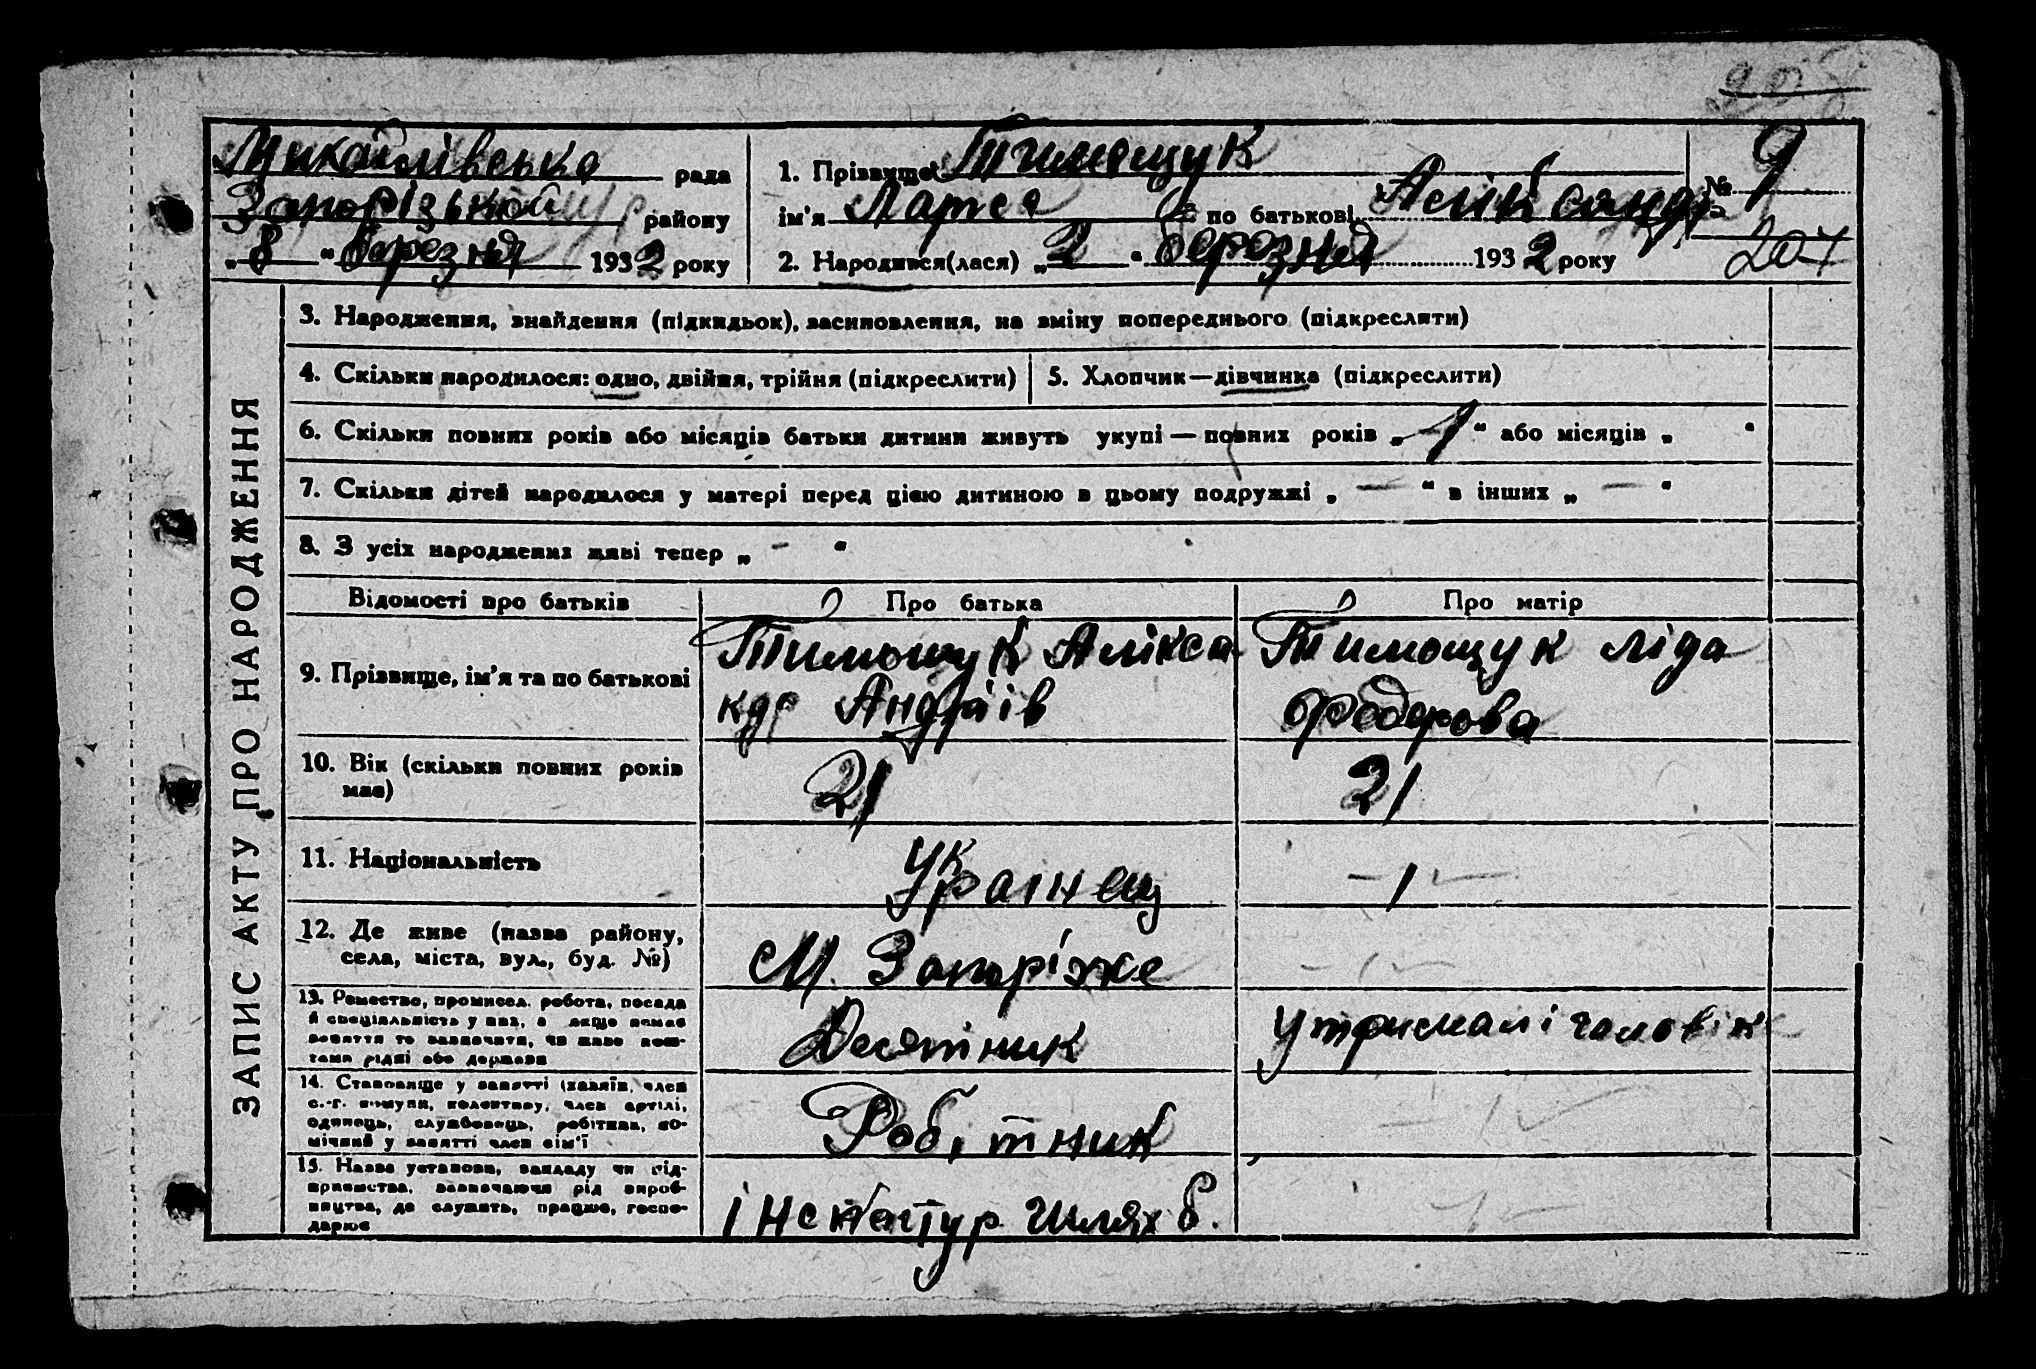 Михайлівська рада
Запорізької району
„8“ березня 1932 року
1. Прізвище Тимощук
ім'я Лариса по батькові Аліксандр
№ 9
207
2. Народився(лася) „2“ березня 1932 року
ЗАПИС АКТУ ПРО НАРОДЖЕННЯ
3. Народження, знайдення (підкидьок), засиновлення, на зміну попереднього (підкреслити)
4. Скільки народилося: одно, двійня, трійня (підкреслити)
5. Хлопчик—дівчинка (підкреслити)
6. Скільки повних років або місяців батьки дитини живуть укупі — повних років „1“ або місяців „ “
7. Скільки дітей народилося у матері перед цією дитиною в цьому подружжі „—“ в інших „—“
8. З усіх народжених живі тепер „-“
Відомості про батьків
Про батька
Про матір
9. Прізвище, ім'я та по батькові
Тимощук Алікса
ндр Андріів
Тимощук Ліда
Федорова
10. Вік (скільки повних років
має)
21
21
11. Національність
Українец
-1-
12. Де живе (назва району,
села, міста, вул., буд. №)
М. Запоріже
-1-
13. Ремество, промисел. робота, посада
й спеціальність у них, а якщо немає
заняття то зазначити, чи живе кош-
тами рідні або держави
Десятник
Утримані чоловік
14. Становище у занятті (хазяїн, член
с.-г. комуни, колективу, член артілі,
одинець, службовець, робітник, по-
мічний у занятті член сім'ї
Робітник
-1-
15. Назва установи, закладу чи під-
приємства, зазначаючи рід вироб-
ництва, де служить, працює, госпо-
дарює
Шлях б.
-1-